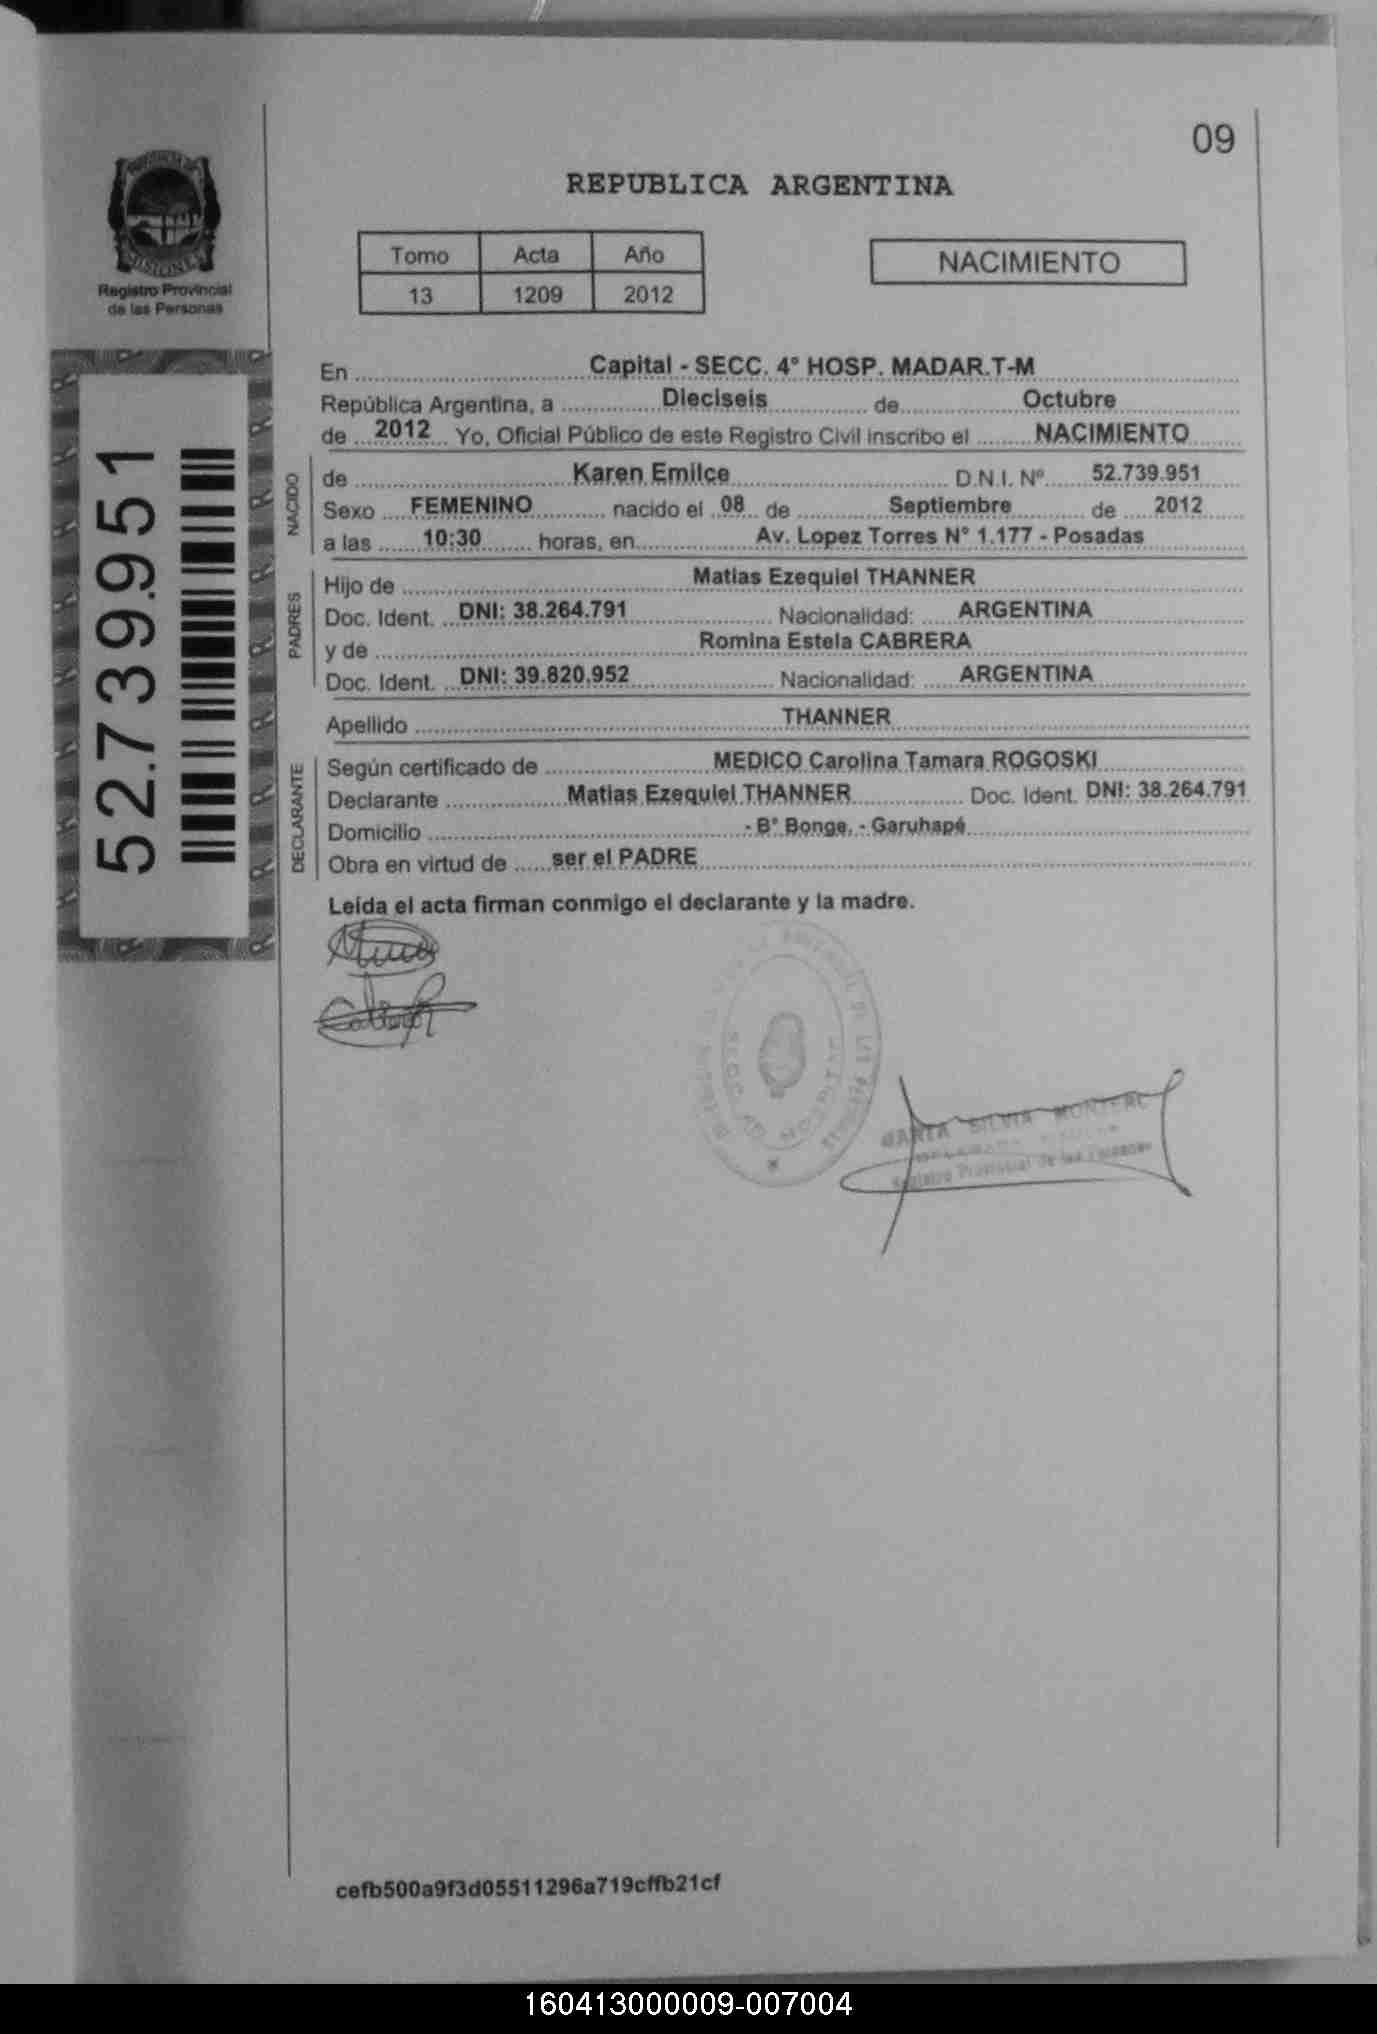 09
REPUBLICA ARGENTINA
PROVINCIA DE
MISIONES
Registro Provincial
de las Personas
Tomo Acta Año
13 1209 2012
NACIMIENTO
52.739.951
En Capital - SECC. 4° HOSP. MADAR.T-M
República Argentina, a Dieciseis de Octubre
de 2012 Yo, Oficial Público de este Registro Civil inscribo el NACIMIENTO
NACIDO
de Karen Emilce D.N.I. Nº 52.739.951
Sexo FEMENINO nacido el 08 de Septiembre de 2012
a las 10:30 horas, en Av. Lopez Torres N° 1.177 - Posadas
PADRES
Hijo de Matias Ezequiel THANNER
Doc. Ident. DNI: 38.264.791 Nacionalidad: ARGENTINA
y de Romina Estela CABRERA
Doc. Ident. DNI: 39.820.952 Nacionalidad: ARGENTINA
Apellido THANNER
DECLARANTE
Según certificado de MEDICO Carolina Tamara ROGOSKI
Declarante Matias Ezequiel THANNER Doc. Ident. DNI: 38.264.791
Domicilio - B° Bonge, - Garuhapé
Obra en virtud de ser el PADRE
Leída el acta firman conmigo el declarante y la madre.
SILVIA
Registro Provincial de las Personas
cefb500a9f3d05511296a719cffb21cf
160413000009-007004